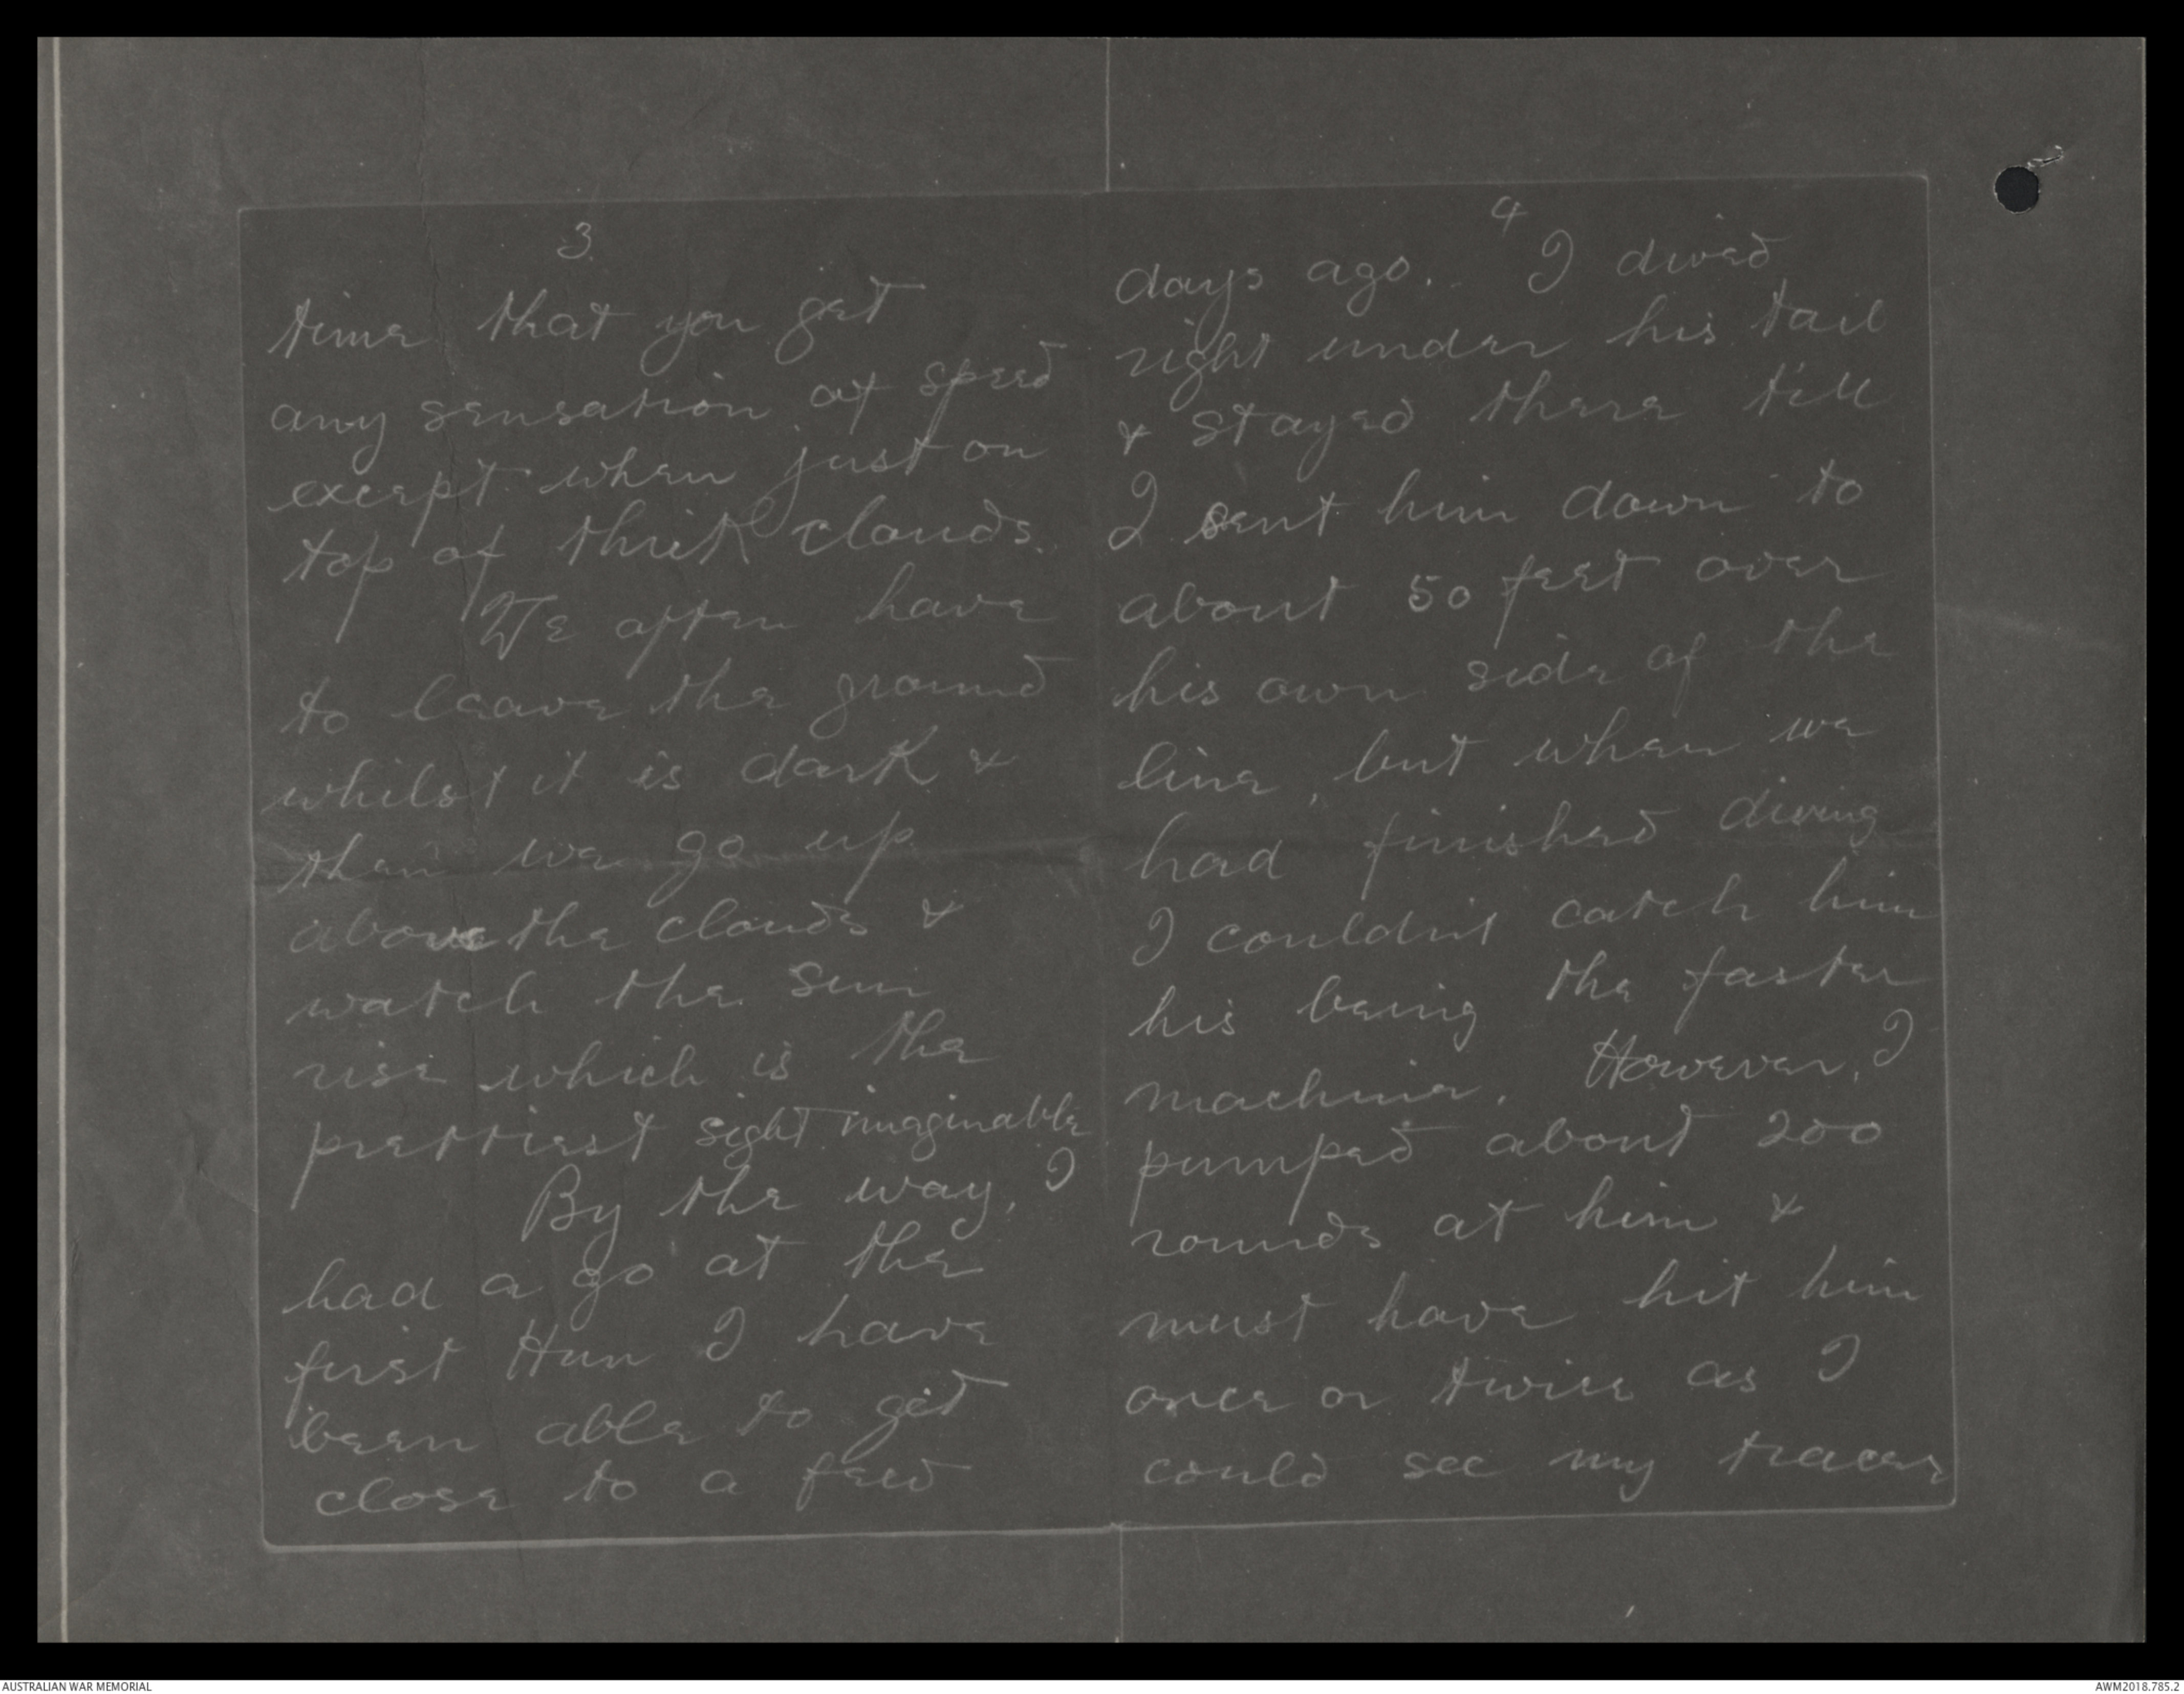 3.
time that you get
any sensation of speed
except when just on
top of thick clouds.
We often have
to leave the ground
whilst it is dark &
then we go up
above the clouds &
watch the sun
rise which is the
prettiest sight imaginable
By the way, I
had a go at the
first Hun I have
been able to get
close to a few
4
days ago. I dived
right under his tail
& stayed there till
I sent him down to
about 50 feet over
his own side of the
line, but when we
had finished diving
I couldn't catch him
his being the faster
machine. However, I
pumped about 200
rounds at him &
must have hit him
once or twice as I
could see my tracer
AUSTRALIAN WAR MEMORIAL
AWM2018.785.2